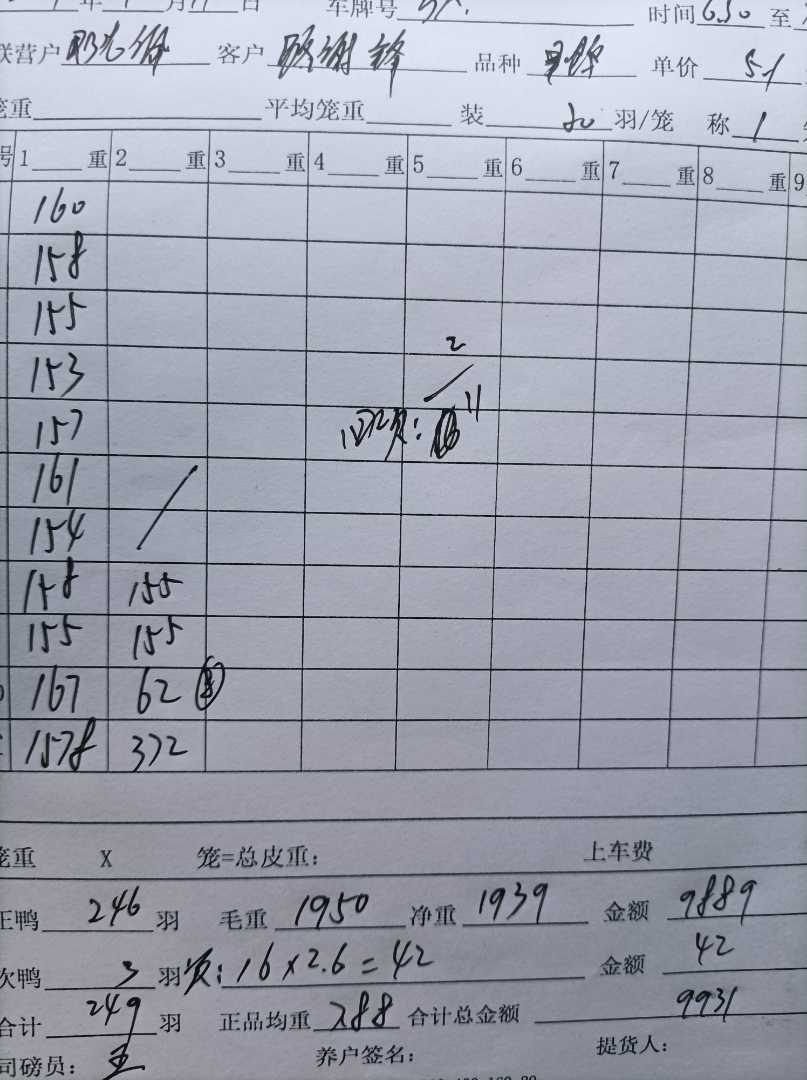 年 月 11 日 车牌号 时间 6.50 至
联营户 客户 品种 单价 51
笼重 平均笼重 装 20 羽/笼 称 1
号 1 重 2 重 3 重 4 重 5 重 6 重 7 重 8 重 9
160
158
155
2
153
157 次: 11
161
154
158 155
155 155
167 62
1578 372
笼重 X 笼=总皮重: 上车费
正鸭 246 羽 毛重 1950 净重 1939 金额 9889
次鸭 3 羽 次: 16×2.6=42 金额 42
合计 249 羽 正品均重 788 合计总金额 9931
司磅员: 王 养户签名: 提货人: